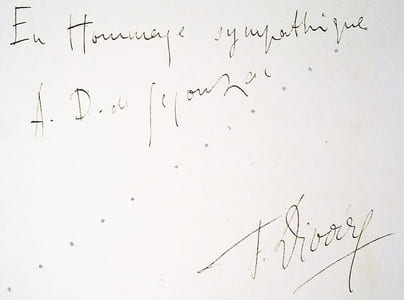 En Hommage sympathique
A. D. de Segonzac
F. Divoire